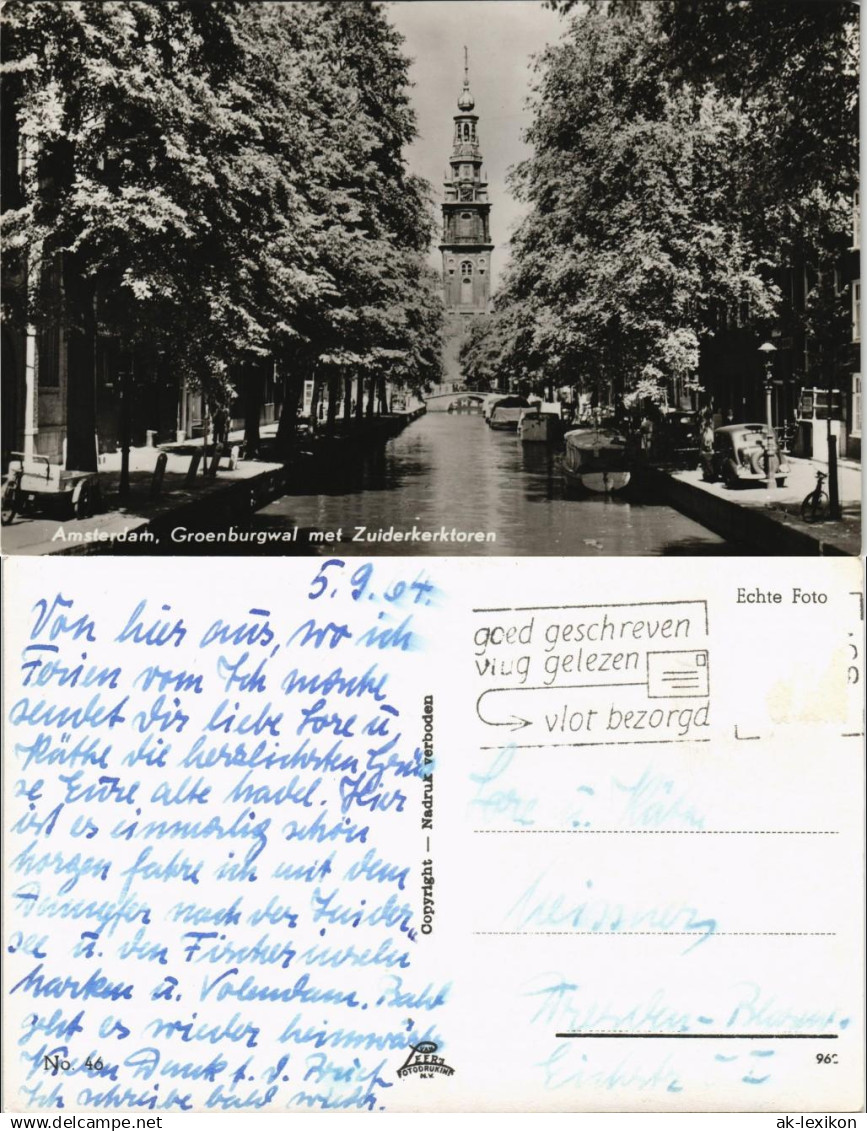 Amsterdam, Groenburgwal met Zuiderkerktoren
5.9.64.
Von hier aus, wo ich
Ferien vom Ich mache
sendet dir liebe Lore u.
Käthe die herzlichsten Grüs
se Eure alte Hadel. Hier
ist es einmalig schön
Morgen fahre ich mit dem
Dampfer nach der Zuider
see u. den Fischerinseln
Marken u. Volendam. Bald
geht es wieder heimwärts
Vielen Dank f. d. Brief
Ich schreibe bald wieder.
No. 46
Copyright — Nadruk verboden
VAN LEER'S
FOTODRUKIND.
N.V.
Echte Foto
goed geschreven
vlug gelezen
vlot bezorgd
Lore u. Käthe
Meissner
Dresden - Blasew.
96
ak-lexikon